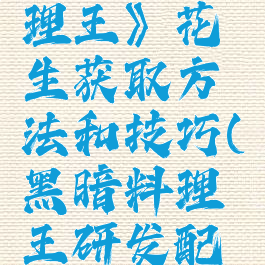 理王》花
生获取方
法和技巧(
黑暗料理
王研发配